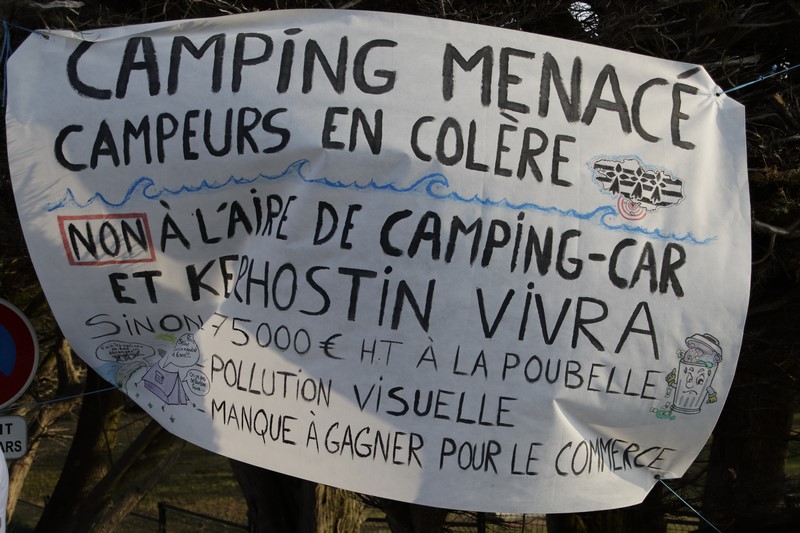 CAMPING MENACÉ
CAMPEURS EN COLÈRE
NON À L'AIRE DE CAMPING-CAR
ET KERHOSTIN VIVRA
SINON 75000€ H.T À LA POUBELLE
- POLLUTION VISUELLE
- MANQUE À GAGNER POUR LE COMMERCE
ARS